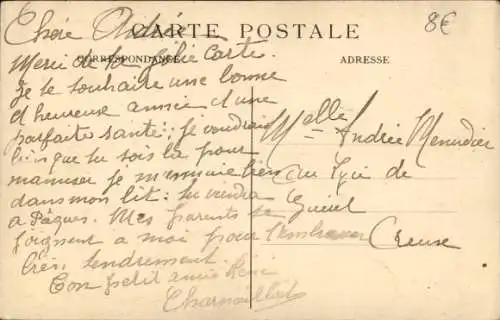 CARTE POSTALE
8€
CORRESPONDANCE
ADRESSE
Chère Andrée
Merci de ta jolie carte.
Je te souhaite une bonne
et heureuse année d'une
parfaite santé: je voudrais
bien que tu sois là pour
m'amuser je m'ennuie bien
dans mon lit: tu viendra
à Pâques. Mes parents se
joignent a moi pour t'embrasser
très tendrement.
Ton petit amie
Melle Andrée Menudier
au Lycée de
Guéret
Creuse